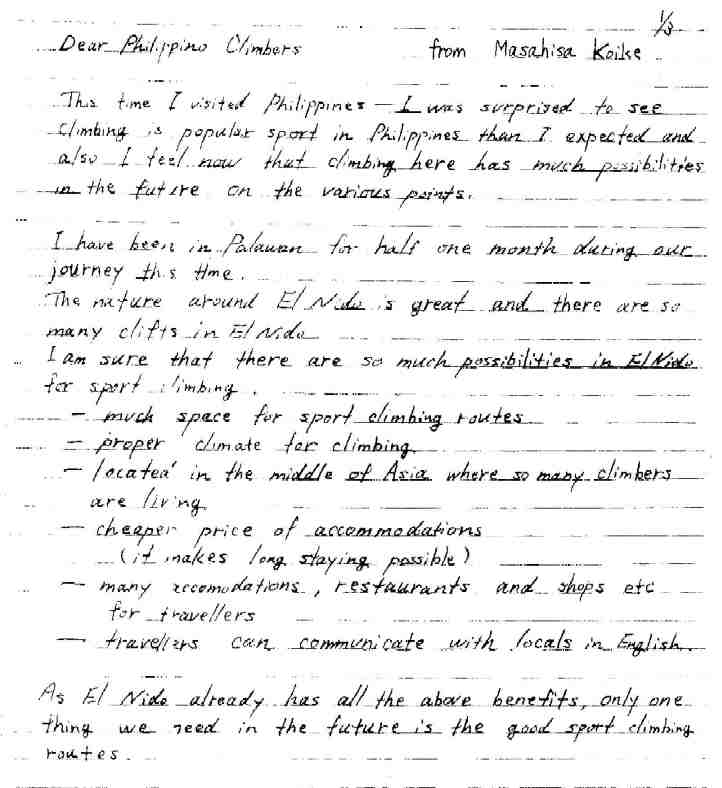 1/3
Dear Philippino Climbers from Masahisa Koike
This time I visited Philippines – I was surprised to see
climbing is popular sport in Philippines than I expected and
also I feel now that climbing here has much possibilities
in the future on the various points.
I have been in Palawan for half one month during our
journey this time.
The nature around El Nido is great and there are so
many clifts in El Nido
I am sure that there are so much possibilities in El Nido
for sport climbing.
– much space for sport climbing routes
– proper climate for climbing
– located in the middle of Asia where so many climbers
are living
– cheaper price of accommodations
(it makes long staying possible)
– many accomodations, restaurants and shops etc
for travellers
– travellers can communicate with locals in English.
As El Nido already has all the above benefits, only one
thing we need in the future is the good sport climbing
routes.